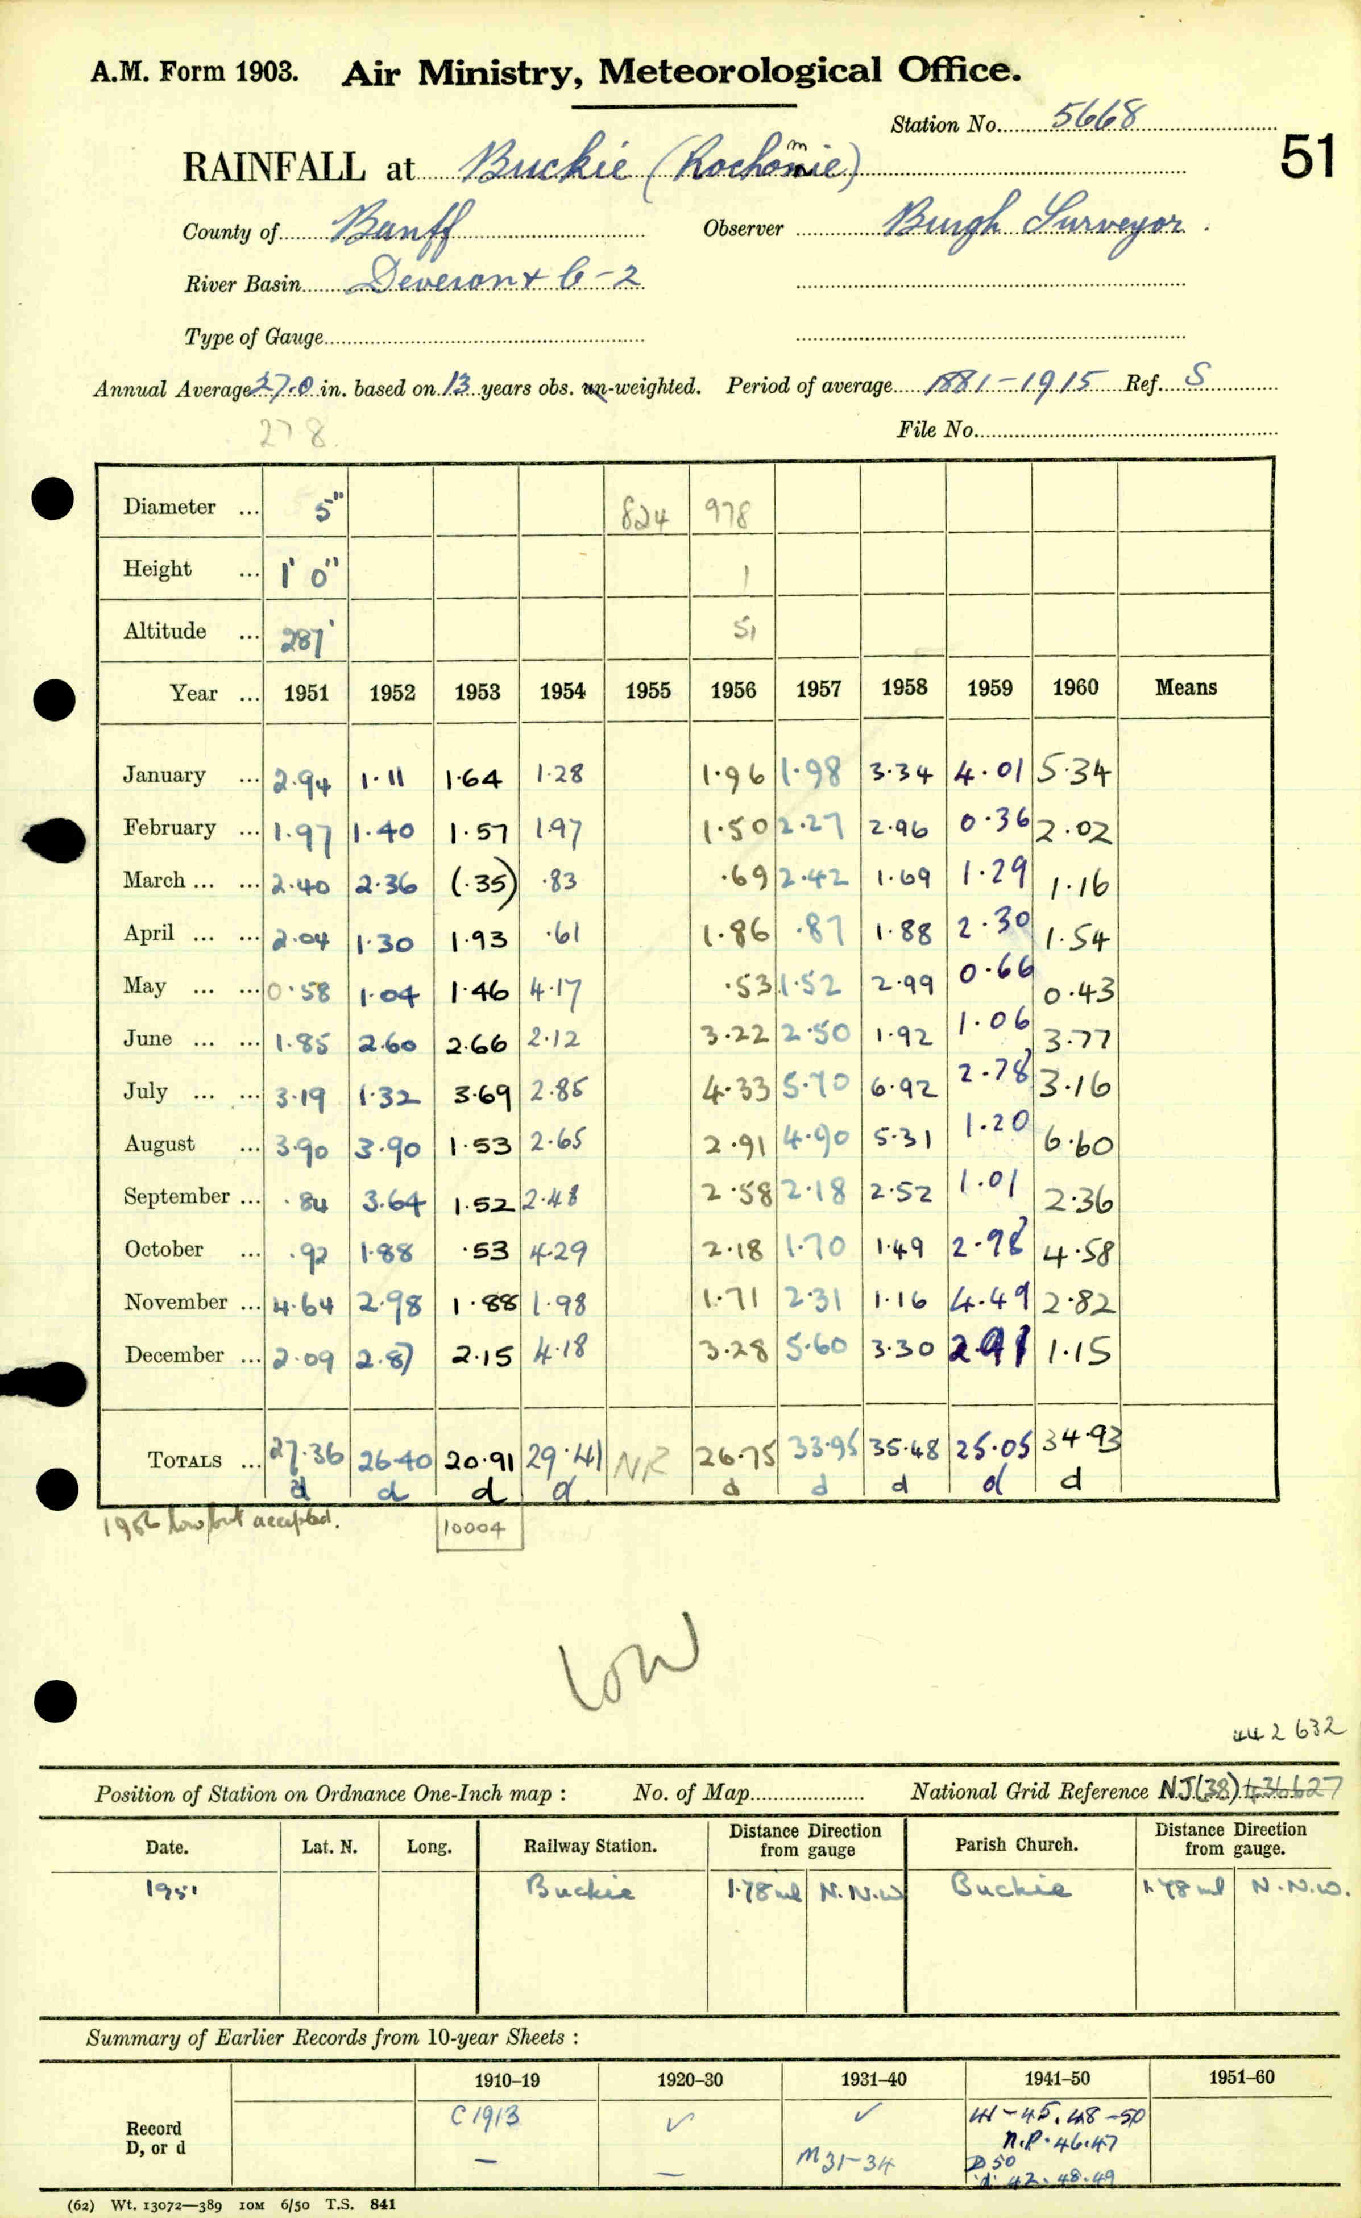 A.M. Form 1903. Air Ministry, Meteorological Office.
Station No. 5668
51
RAINFALL at Buckie (Rochomie)
County of Banff Observer Burgh Surveyor.
River Basin Deveron + C-2
Type of Gauge
Annual Average 27.0 in. based on 13 years obs. un-weighted. Period of average 1881-1915 Ref. S
27 8 File No.
Diameter ... 5" 824 978
Height ... 1' 0" 1
Altitude ... 287' 51
Year ... 1951 1952 1953 1954 1955 1956 1957 1958 1959 1960 Means
January ... 2.94 1.11 1.64 1.28 1.96 1.98 3.34 4.01 5.34
February ... 1.97 1.40 1.57 1.97 1.50 2.27 2.96 0.36 2.02
March ... ... 2.40 2.36 (.35) .83 .69 2.42 1.69 1.29 1.16
April ... ... 2.04 1.30 1.93 .61 1.86 .87 1.88 2.30 1.54
May ... ... 0.58 1.04 1.46 4.17 .53 1.52 2.99 0.66 0.43
June ... ... 1.85 2.60 2.66 2.12 3.22 2.50 1.92 1.06 3.77
July ... ... 3.19 1.32 3.69 2.85 4.33 5.70 6.92 2.78 3.16
August ... 3.90 3.90 1.53 2.65 2.91 4.90 5.31 1.20 6.60
September ... .84 3.64 1.52 2.48 2.58 2.18 2.52 1.01 2.36
October ... .92 1.88 .53 4.29 2.18 1.70 1.49 2.98 4.58
November ... 4.64 2.98 1.88 1.98 1.71 2.31 1.16 4.49 2.82
December ... 2.09 2.87 2.15 4.18 3.28 5.60 3.30 2.91 1.15
TOTALS ... 27.36 26.40 20.91 29.41 NR 26.75 33.95 35.48 25.05 34.93
d d d d d d d d d
1956 low but accepted. 10004
low
442 632
Position of Station on Ordnance One-Inch map : No. of Map National Grid Reference NJ(38) 436627
Date. Lat. N. Long. Railway Station. Distance Direction from gauge Parish Church. Distance Direction from gauge.
1951 Buckie 1.78 ml N.N.W Buckie 1.78 ml N.N.W.
Summary of Earlier Records from 10-year Sheets :
1910–19 1920–30 1931–40 1941–50 1951–60
Record D, or d C 1913 ✓ ✓ 41-45. 48-50
n.p. 46.47
— — M 31-34 D 50
d. 42. 48.49
(62) Wt. 13072—389 10M 6/50 T.S. 841